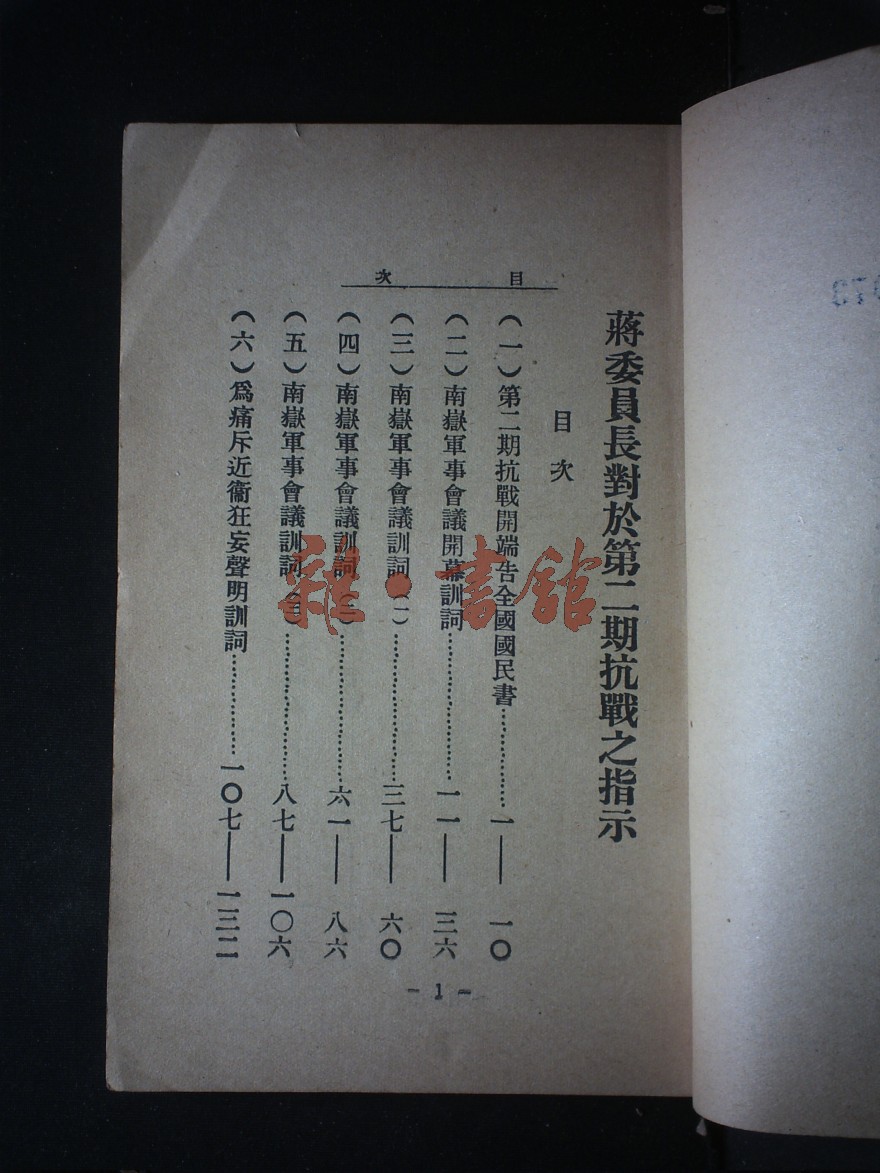 蔣委員長對於第二期抗戰之指示
目次
目次
(一)第二期抗戰開端告全國國民書…………一——一〇
(二)南嶽軍事會議開幕訓詞…………一一——三六
(三)南嶽軍事會議訓詞(一)…………三七——六〇
(四)南嶽軍事會議訓詞(二)…………六一——八六
(五)南嶽軍事會議訓詞(三)…………八七——一〇六
(六)爲痛斥近衞狂妄聲明訓詞…………一〇七——一三二
- 1 -
雜·書館